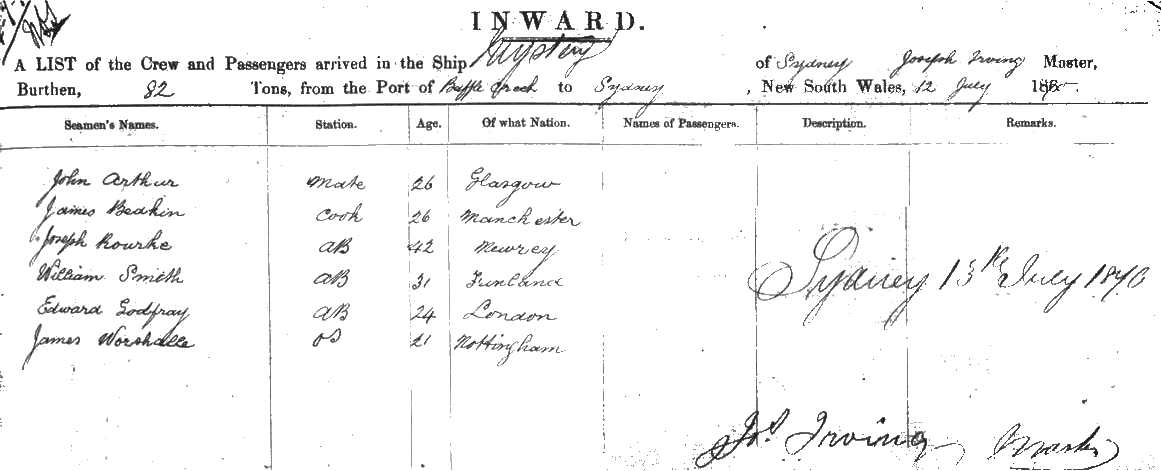 INWARD.
A LIST of the Crew and Passengers arrived in the Ship Mystery of Sydney Joseph Irving Master,
Burthen, 82 Tons, from the Port of Baffle Creek to Sydney, New South Wales, 12 July 1870
Seamen's Names. Station. Age. Of what Nation. Names of Passengers. Description. Remarks.
John Arthur Mate 26 Glasgow
James Beakin Cook 26 Manchester
Joseph Rourke AB 42 Newrey
William Smith AB 31 Finland
Edward Godfray AB 24 London
Sydney 13th July 1870
James Worshalle OS 21 Nottingham
Jos. Irving Master